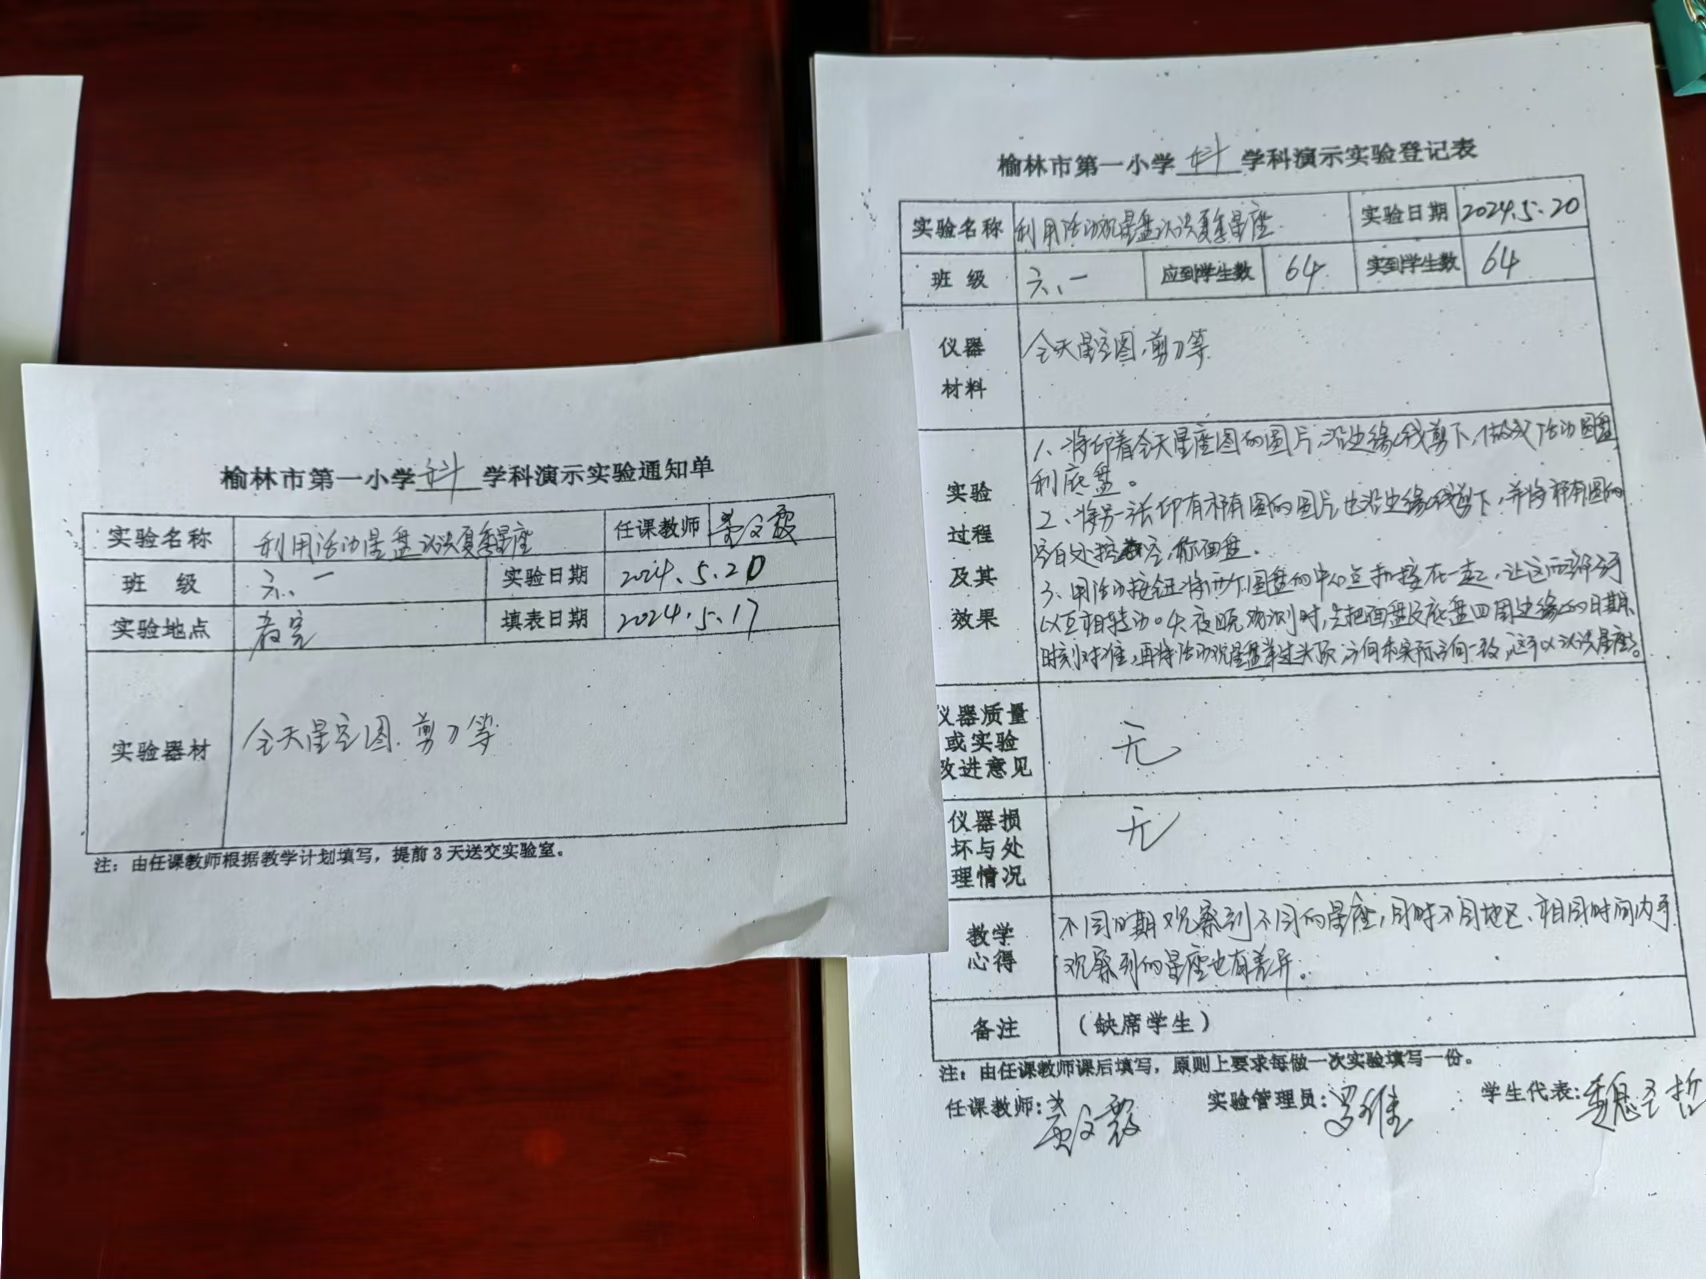 榆林市第一小学 科 学科演示实验通知单
实验名称 利用活动星盘认识夏季星座 任课教师
班 级 六、一 实验日期 2024.5.20
实验地点 教室 填表日期 2024.5.17
实验器材 全天星空图、剪刀等
注：由任课教师根据教学计划填写，提前3天送交实验室。
榆林市第一小学 科 学科演示实验登记表
实验名称 利用活动观星盘认识夏季星座 实验日期 2024.5.20
班 级 六、一 应到学生数 64 实到学生数 64
仪器
材料
全天星空图、剪刀等
实验
过程
及其
效果
1、将印着全天星座图的图片，沿边缘线剪下，做成活动圆盘
利底盘。
2、将另一张印有 图的图片也沿边缘线剪下，并将 图的
空白处挖 空，称面盘。
3、用活动按钮将两个圆盘的中心点扣接在一起，让这两部分可
以互相转动。夜晚观测时，先把面盘及底盘四周边缘的日期和
时刻对准，再将活动观星盘举过头顶，方向和实际方向一致，这可以认识星座。
仪器质量
或实验
改进意见
无
仪器损
坏与处
理情况
无
教学
心得
不同日期观察到不同的星座，同时不同地区、相同时间内可
观察到的星座也有差异。
备注 （缺席学生）
注：由任课教师课后填写，原则上要求每做一次实验填写一份。
任课教师： 实验管理员：罗维 学生代表：魏 哲